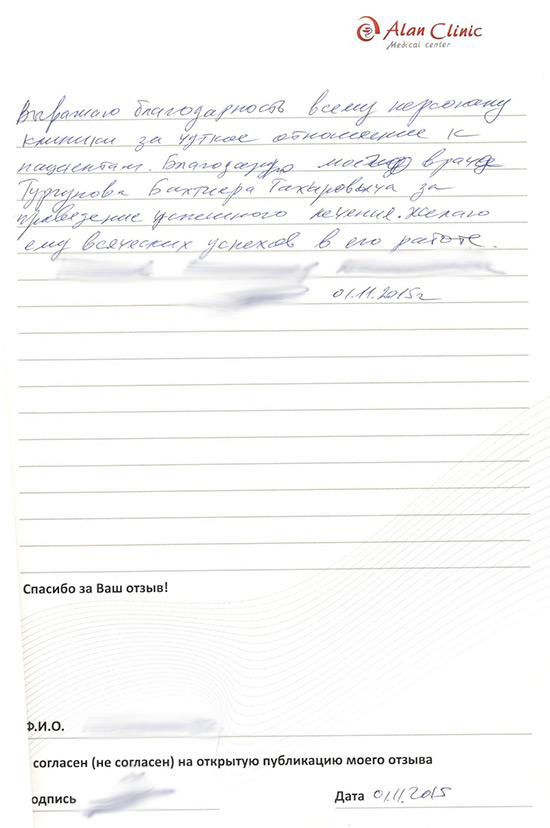 Alan Clinic
Medical center
Выражаю благодарность всему персоналу
клиники за чуткое отношение к
пациентам. Благодарю моего врача
Тургунова Бахтиера Тахировича за
проведение успешного лечения. Желаю
ему всяческих успехов в его работе.
01.11.2015г
Спасибо за Ваш отзыв!
Ф.И.О.
согласен (не согласен) на открытую публикацию моего отзыва
одпись
Дата 01.11.2015